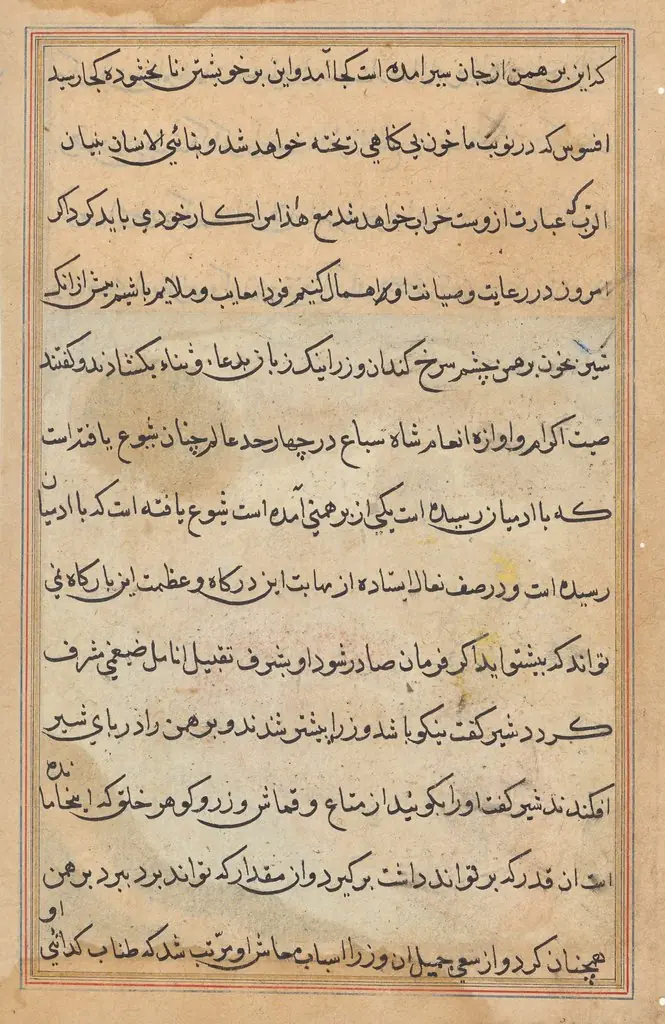 که این برهمن از جان سیر امده است کجا آمد و این بر خویشتن نابخشوده کجا رسید
افسوس که در نوبت ما خون بی کناهی ریخته خواهد شد و بنائی الانسان بنیان
الرب که عبارت ازوست خراب خواهد شد مع هذا مرا کار خودمی باید کرد اکر
امروز در رعایت و صیانت او اهمال کنیم فردا معایب و ملایم باشیم پیش از انک
شیر بخون برهمن چشم سرخ کند ان وزرا نیک زبان بدعا و ثناء بکشادند و کفتند
صیت اکرام و اوازه انعام شاه سباع در چهار حد عالم چنان شیوع یافته است
که با ادمیان رسیده است یکی از برهمنی آمده است شیوع یافته است که با ادمیان
رسیده است و در صف نعال ایستاده از مهابت این درکاه و عظمت این بارکاه نمی
تواند که پیشتر اید اکر فرمان صادر شود او بشرف تقبیل انامل ضیغمی مشرف
کردد شیر کفت نیکو باشد وزرا پیشتر شدند و برهمن را در پای شیر
افکندند شیر کفت او را بکوئید از متاع و قماش و زر و کوهر خلق که اینجا مانده
است ان قدر که بر تواند داشت برکیرد و ان مقدار که تواند برد ببرد برهمن
همچنان کرد و از سعی جمیل ان وزرا اسباب معاش او مرتب شد که طناب کدائی او